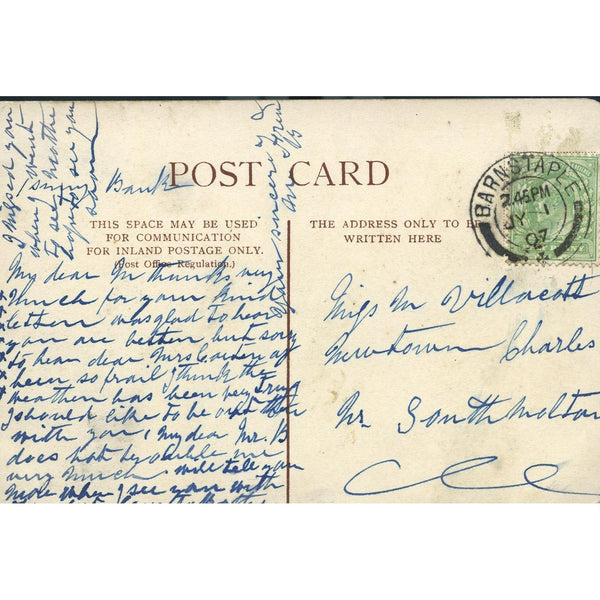 I missed you
when I went
to see Mothe
hope to see you
soon
Sunny Bank
POST CARD
THIS SPACE MAY BE USED
FOR COMMUNICATION
FOR INLAND POSTAGE ONLY.
(Post Office Regulation.)
THE ADDRESS ONLY TO BE
WRITTEN HERE
BARNSTAPLE
7.45PM
JY 1
07
My dear M thanks very
much for your kind
letter was glad to hear
you are better but sorry
to hear dear Mrs
been so frail I think the
weather has been very
I should like to be out
with you, My dear Mr. B
does not
very much will tell you
more when I see you with
Yours sincere
Friend
Miss M Villacott
Newtown Charles
Nr South Molton